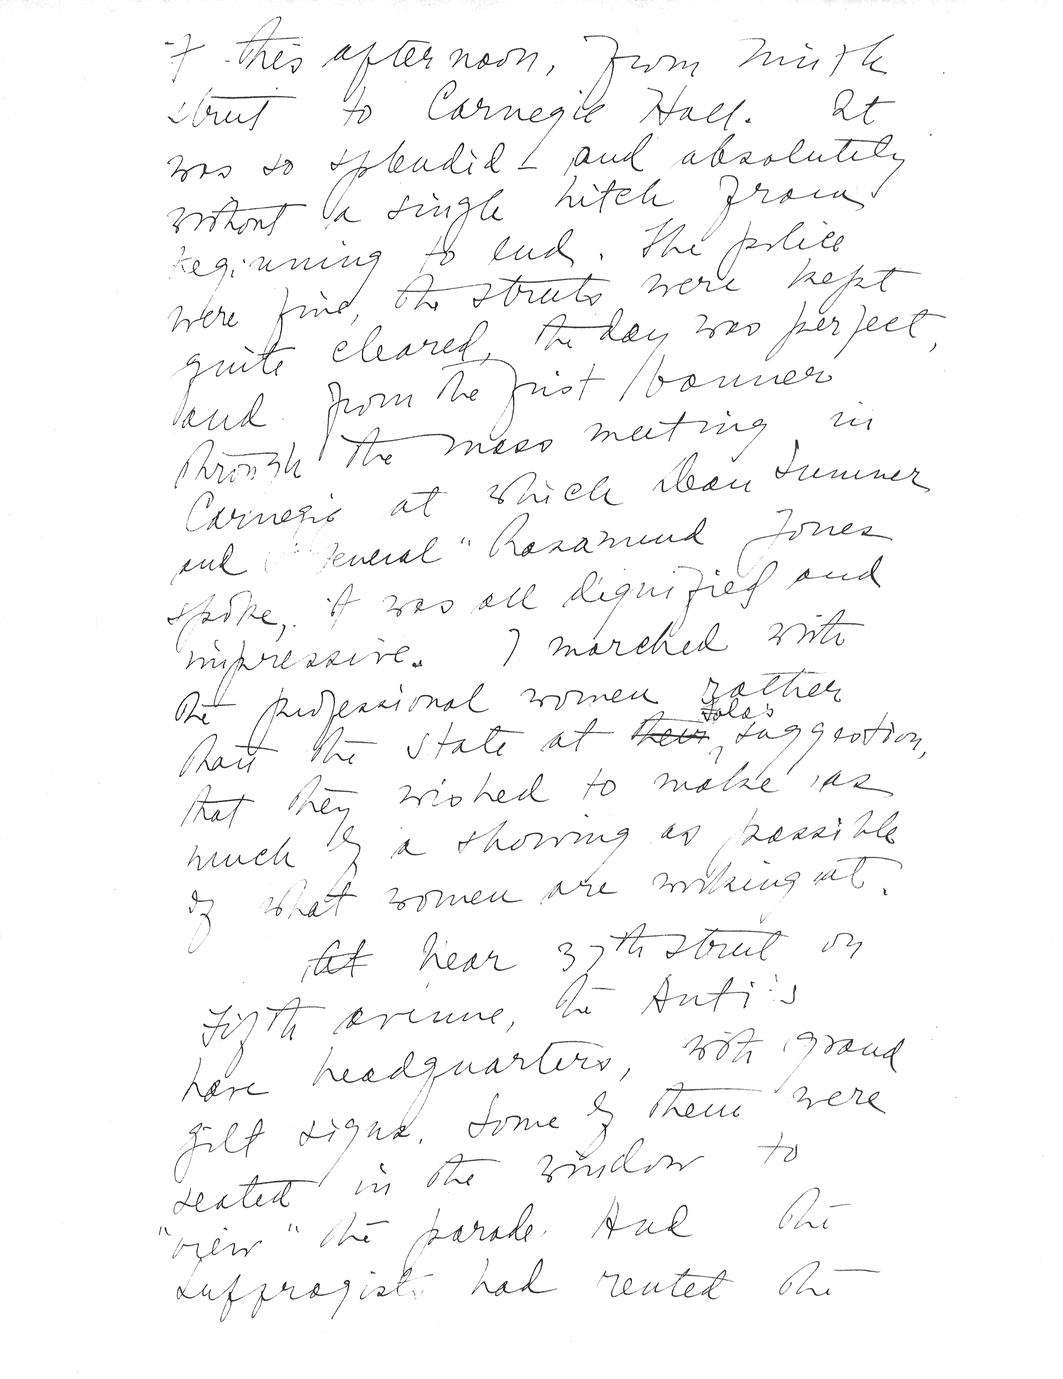 this afternoon, from Ninth
street to Carnegie Hall. It
was so splendid - and absolutely
without a single hitch from
beginning to end. The police
were fine, the streets were kept
quite cleared, the day was perfect,
and from the first banner
through the mass meeting in
Carnegie at which Dean Sumner
and "General" Rosamund Jones
spoke, it was all dignified and
impressive. I marched with
the professional women rather
than the State at their Lola's suggestion,
that they wished to make as
much of a showing as possible
of what women are working at.
At Near 37th street on
Fifth avenue, the Anti's
have headquarters, with grand
gilt signs. Some of them were
seated in the window to
"view" the parade. And the
suffragists had rented the